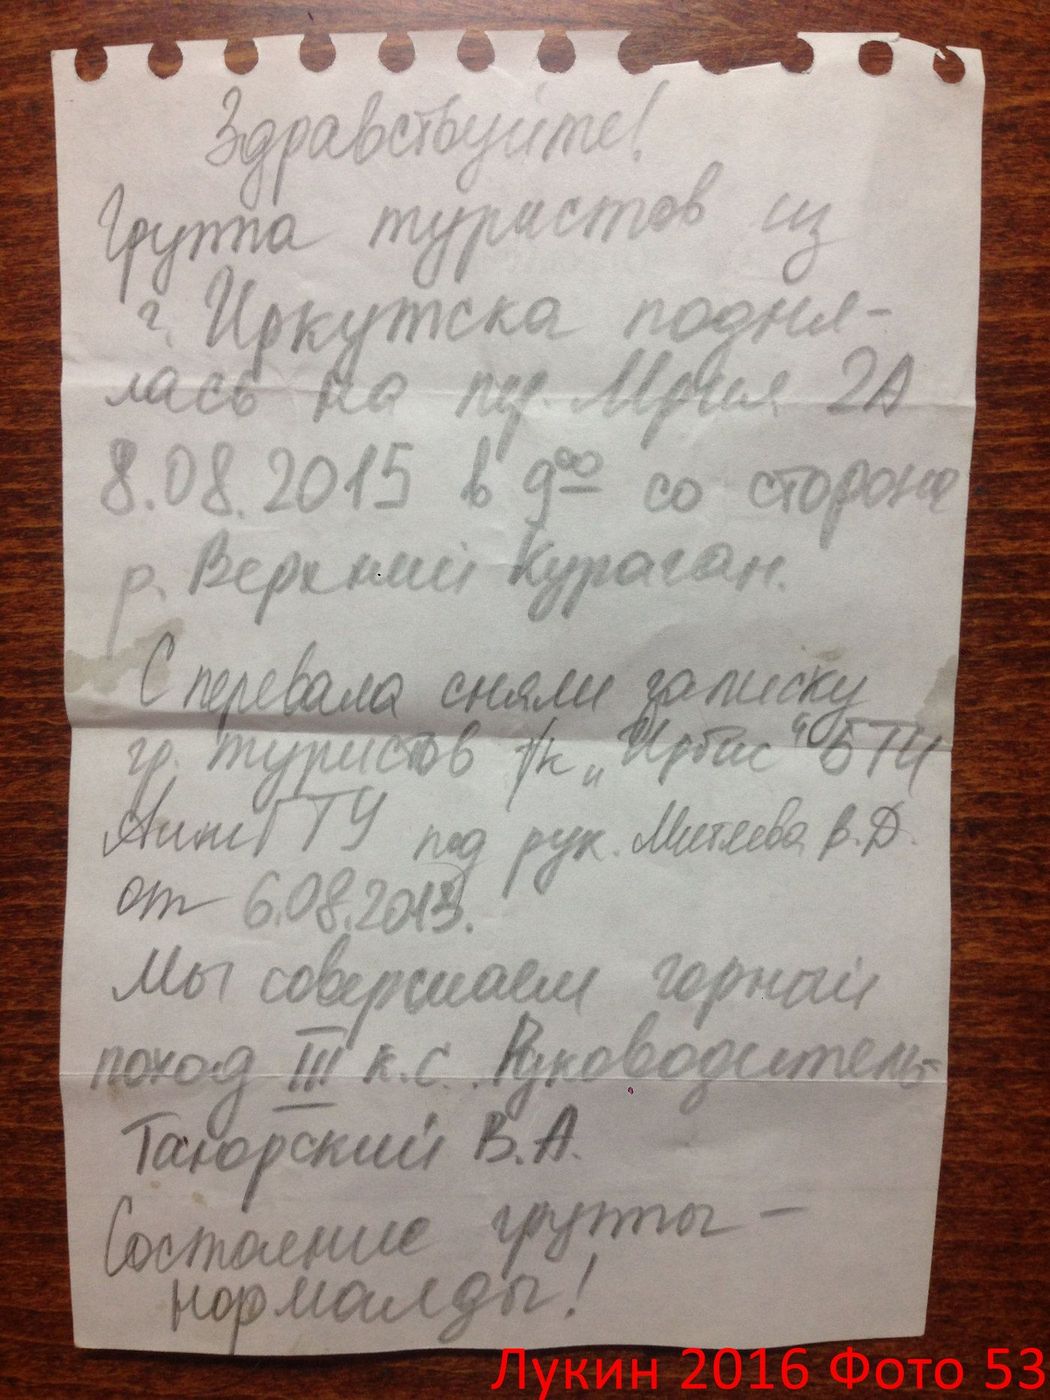 Здравствуйте!
Группа туристов из
г. Иркутска подня-
лась на пер. Мрия 2А
8.08.2015 в 9⁰⁰ со стороны
р. Верхний Кураган.
С перевала сняли записку
гр. туристов т/к „Ирбис“ БТИ
АлтГТУ под рук. Митяева В.Д.
от 6.08.2013.
Мы совершаем горный
поход III к.с. Руководитель-
В.А.
Состояние группы -
нормалды!
Лукин 2016 Фото 53